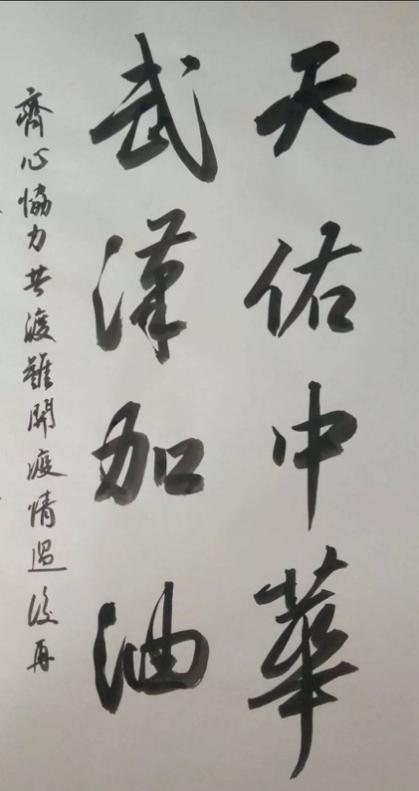 天佑中華
武漢加油
齊心協力共渡難関疫情過後再